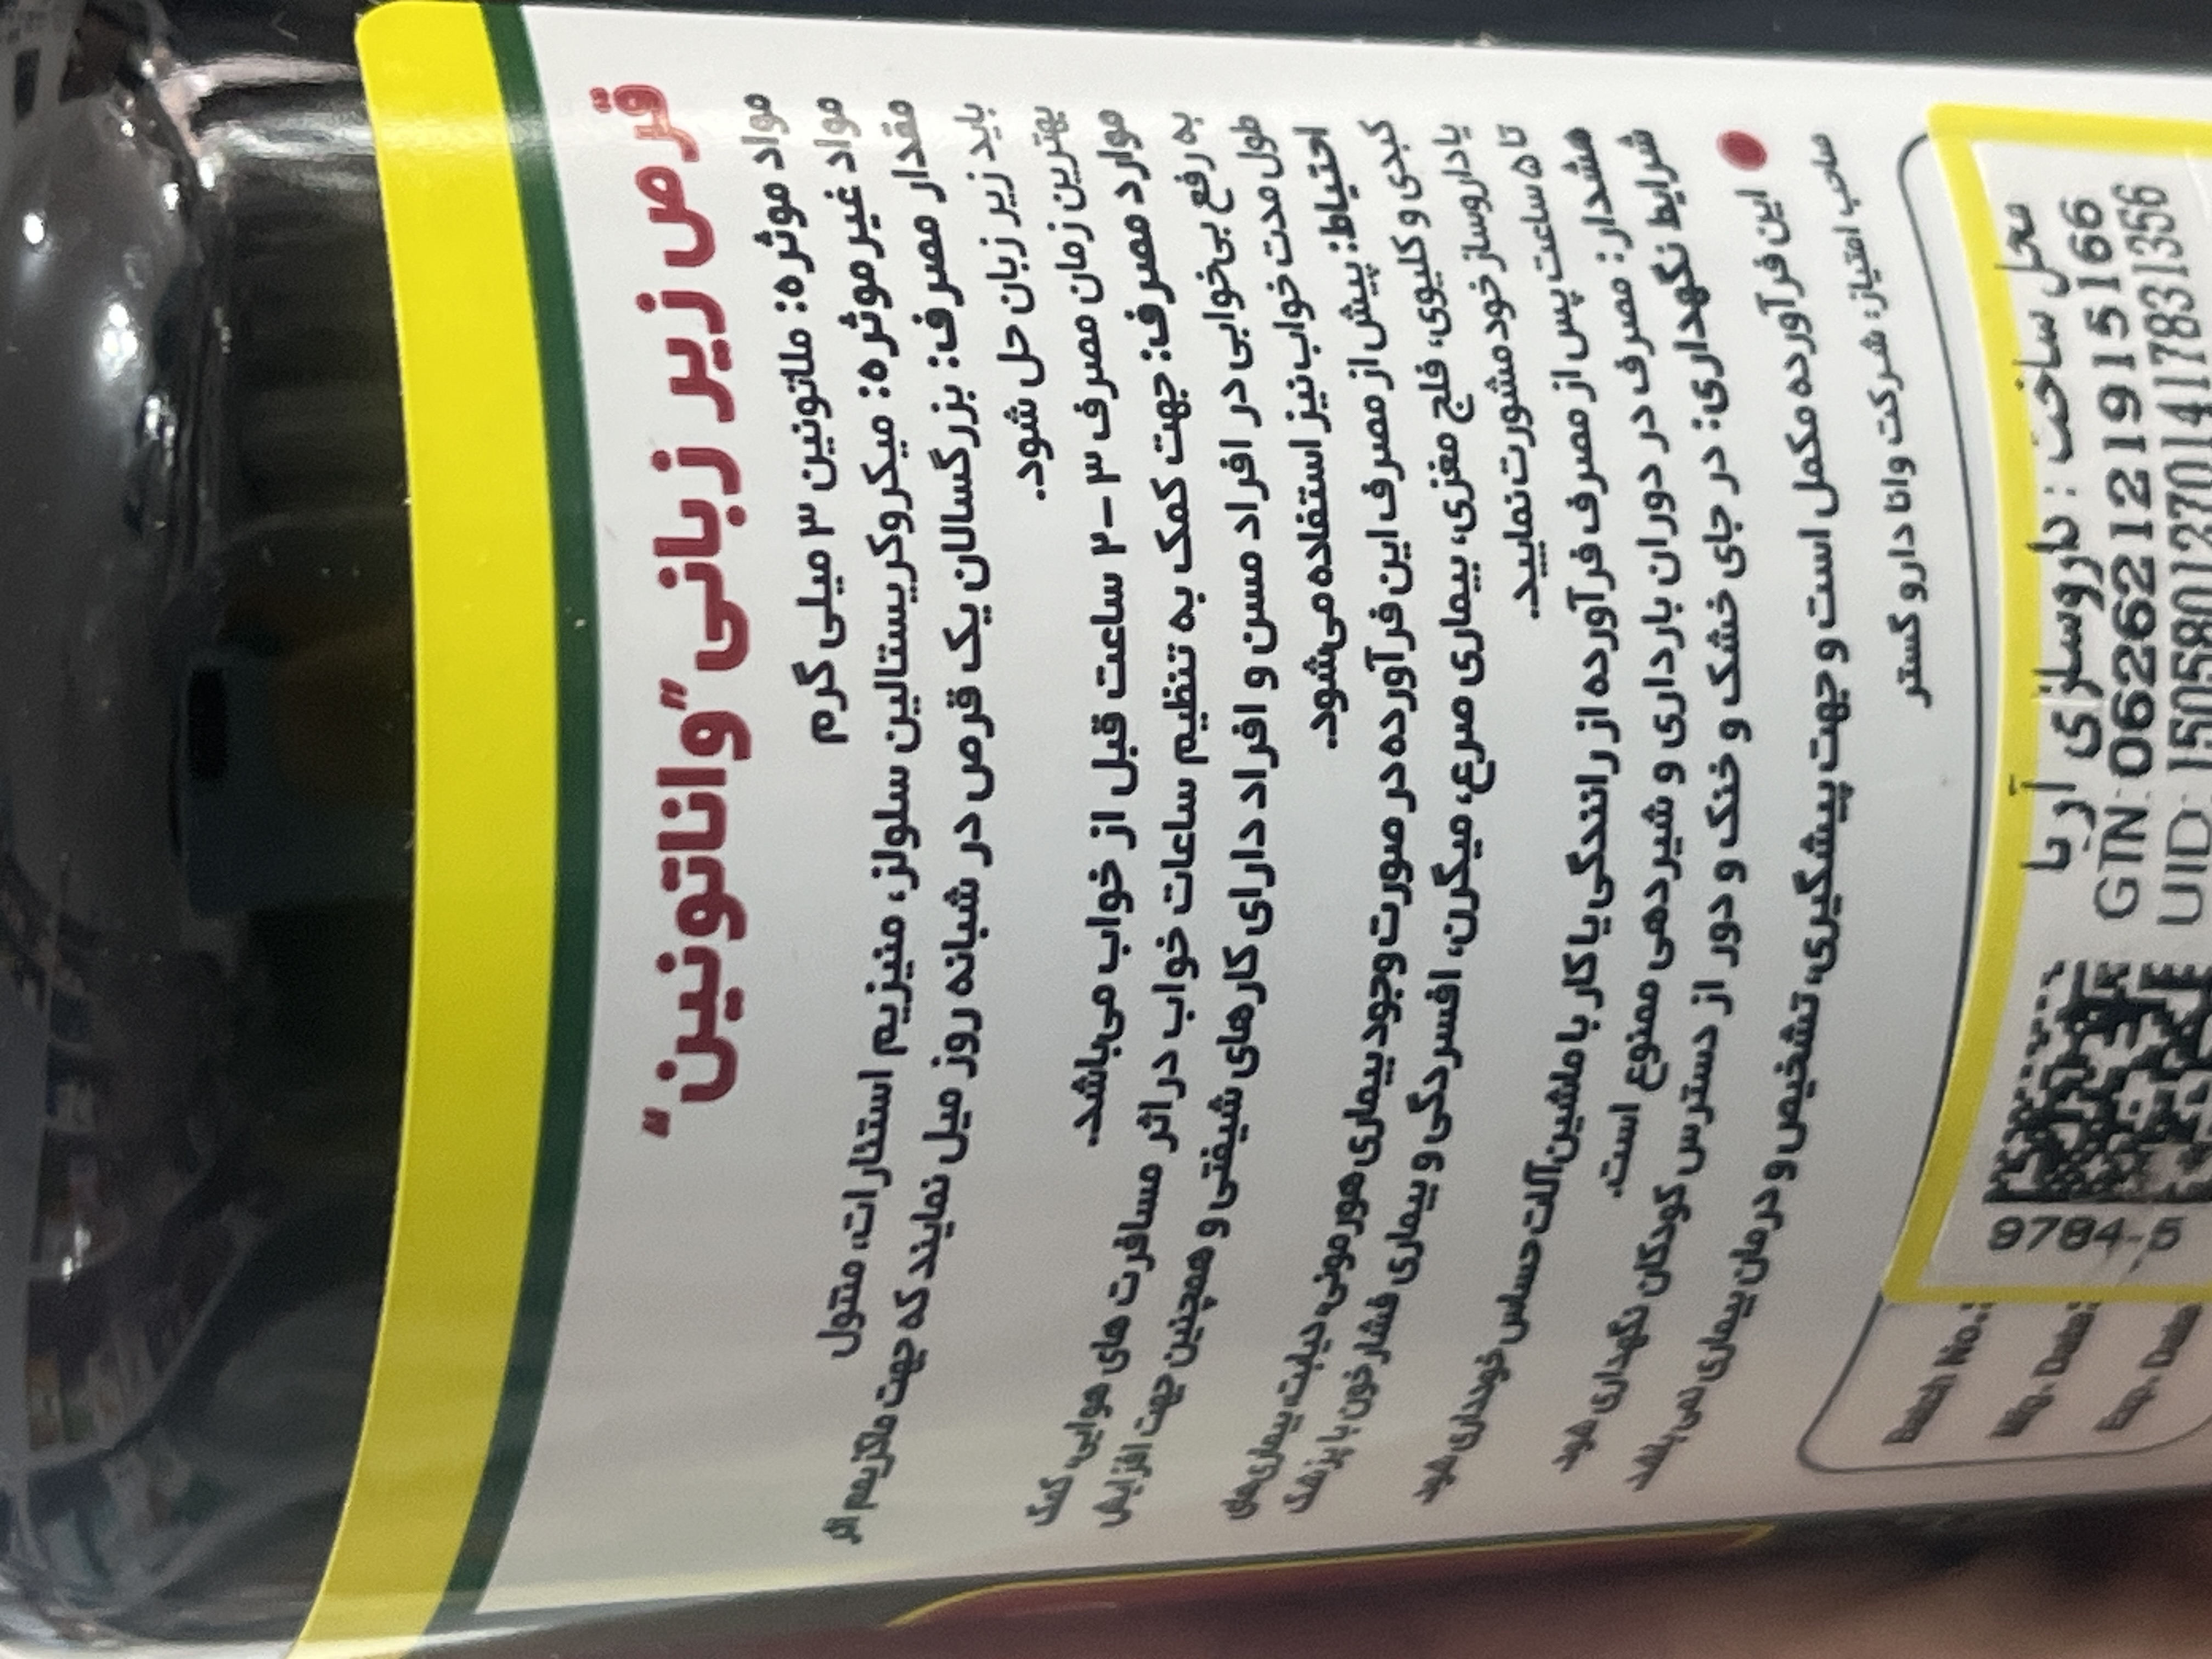 قرص زیر زبانی "واناتونین"
مواد موثره: ملاتونین ۳ میلی گرم
مواد غیر موثره: میکروکریستالین سلولز، منیزیم استئارات، منتول
مقدار مصرف: بزرگسالان یک قرص در شبانه روز میل نمایند که جهت ماکزیمم اثر
باید زیر زبان حل شود.
بهترین زمان مصرف ۳-۲ ساعت قبل از خواب می‌باشد.
موارد مصرف: جهت کمک به تنظیم ساعات خواب در اثر مسافرت های هوایی، کمک
به رفع بی‌خوابی در افراد مسن و افراد دارای کارهای شیفتی و همچنین جهت افزایش
طول مدت خواب نیز استفاده می‌شود.
احتیاط: پیش از مصرف این فرآورده در صورت وجود بیماری هورمونی، دیابت، بیماری‌های
کبدی و کلیوی، فلج مغزی، بیماری صرع، میگرن، افسردگی و بیماری فشار خون با پزشک
یا داروساز خود مشورت نمایید.
تا ۵ ساعت پس از مصرف فرآورده از رانندگی یا کار با ماشین‌آلات حساس خودداری شود.
هشدار: مصرف در دوران بارداری و شیردهی ممنوع است.
شرایط نگهداری: در جای خشک و خنک و دور از دسترس کودکان نگهداری شود.
این فرآورده مکمل است و جهت پیشگیری، تشخیص و درمان بیماری نمی باشد.
صاحب امتیاز: شرکت وانا دارو گستر
محل ساخت : داروسازی آریا
GTN: 06262121915166
UID: 15058012701417831356
9784-5
Batch No.:
Mfg. Date:
Exp. Date